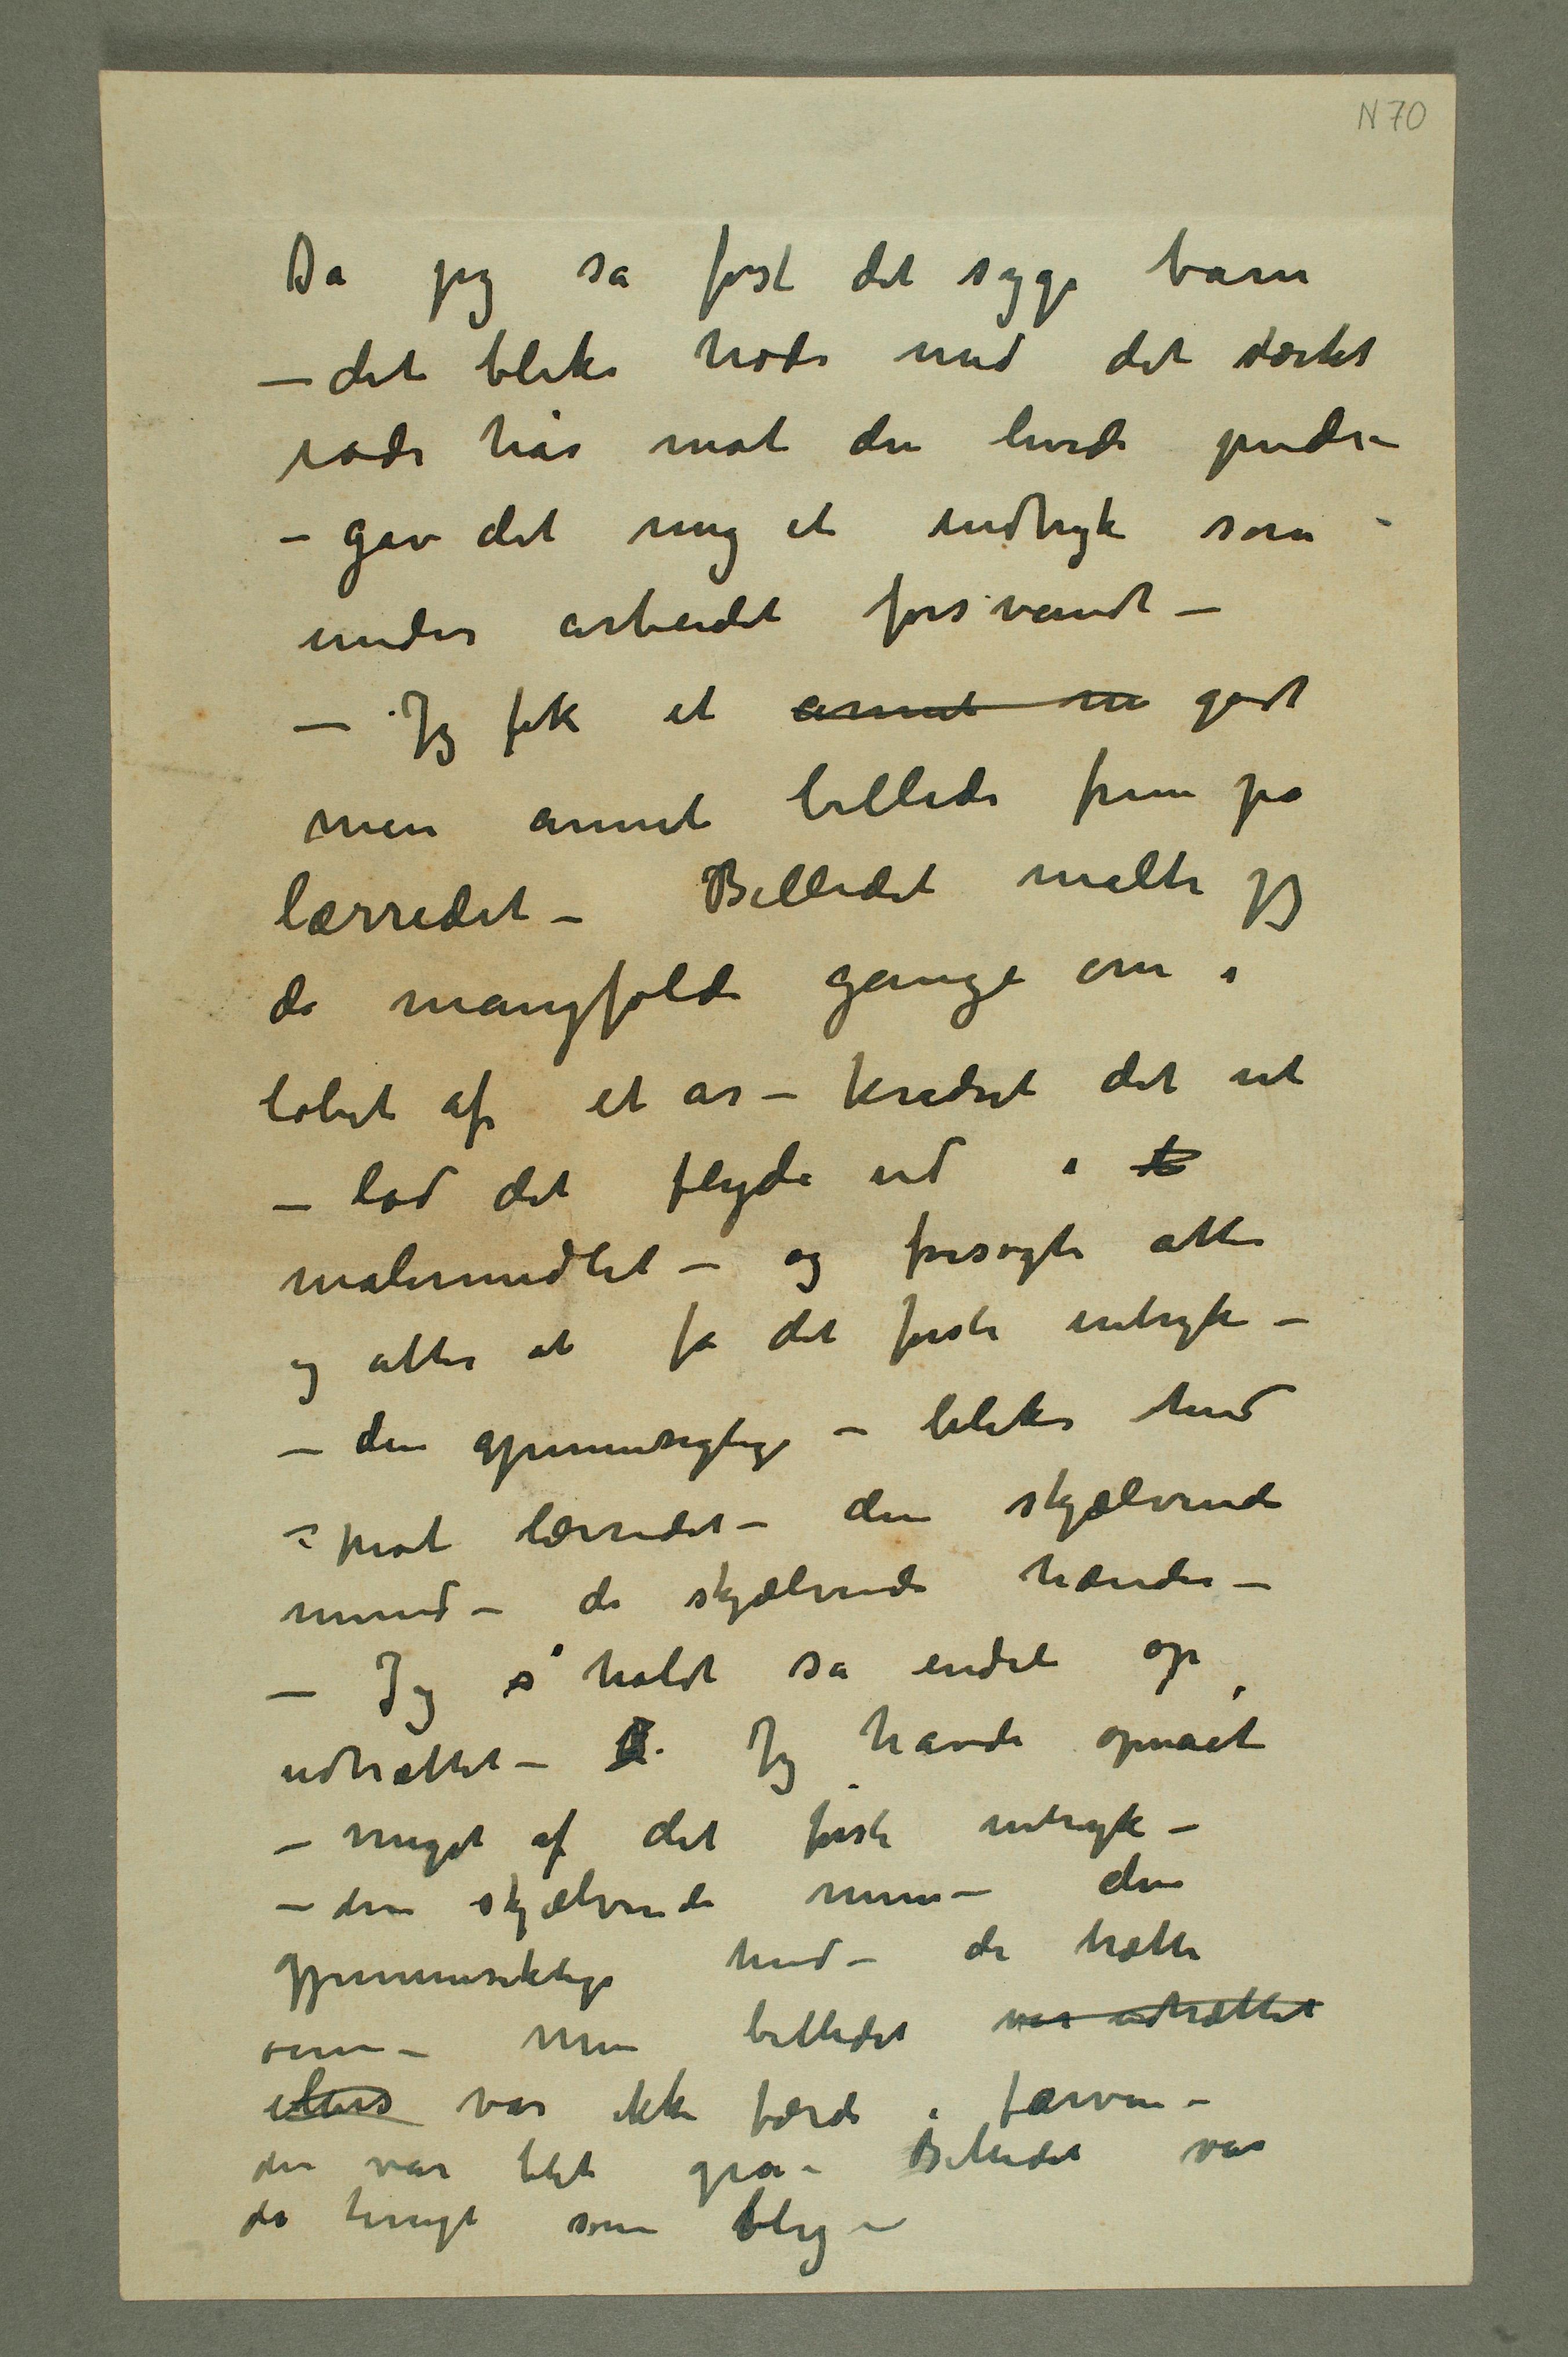 N 70
Da jeg så først det syge barn
– det bleke hode med det stærkt
røde hår mot den hvide pude –
– gav det mig et indtryk som
under arbeidet forsvandt –
– Jeg fik et annet m godt
men annet billede frem på
lærredet – Billedet malte jeg
de mangfoldi gange om i
løbet af et år – kradset det ut
– lod det flyde ud i t
malermedlet – og forsøgte atter
og atter at få det første intryk –
– den gjennemsigtige – bleke hud
mot lærredet – den skjælvende
mund – de skjælvende hænder –
– Jeg s holdt så endeli op
udtrættet – Jeg havde opnået
– meget af det første intryk –
– den skjælvende mun – den
gjennemsiktige hud – de trætte
øine – men billedet var udtrættet
ellers var ikke færdi i farven –
den var blet grå – Billedet var
da tungt som bly –